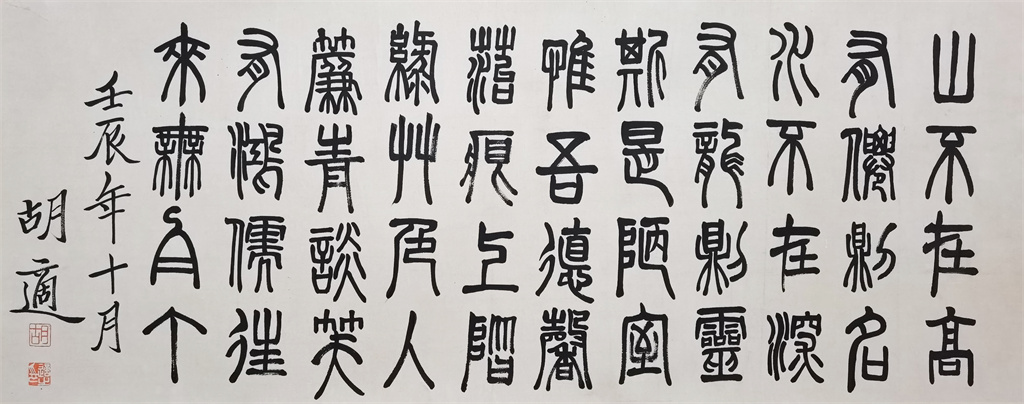 山不在高
有僊則名
水不在深
有龍則靈
斯是陋室
惟吾德馨
苔痕上階
綠艸色入
簾青談笑
有鴻儒往
來無白丁
壬辰年十月
胡適
胡